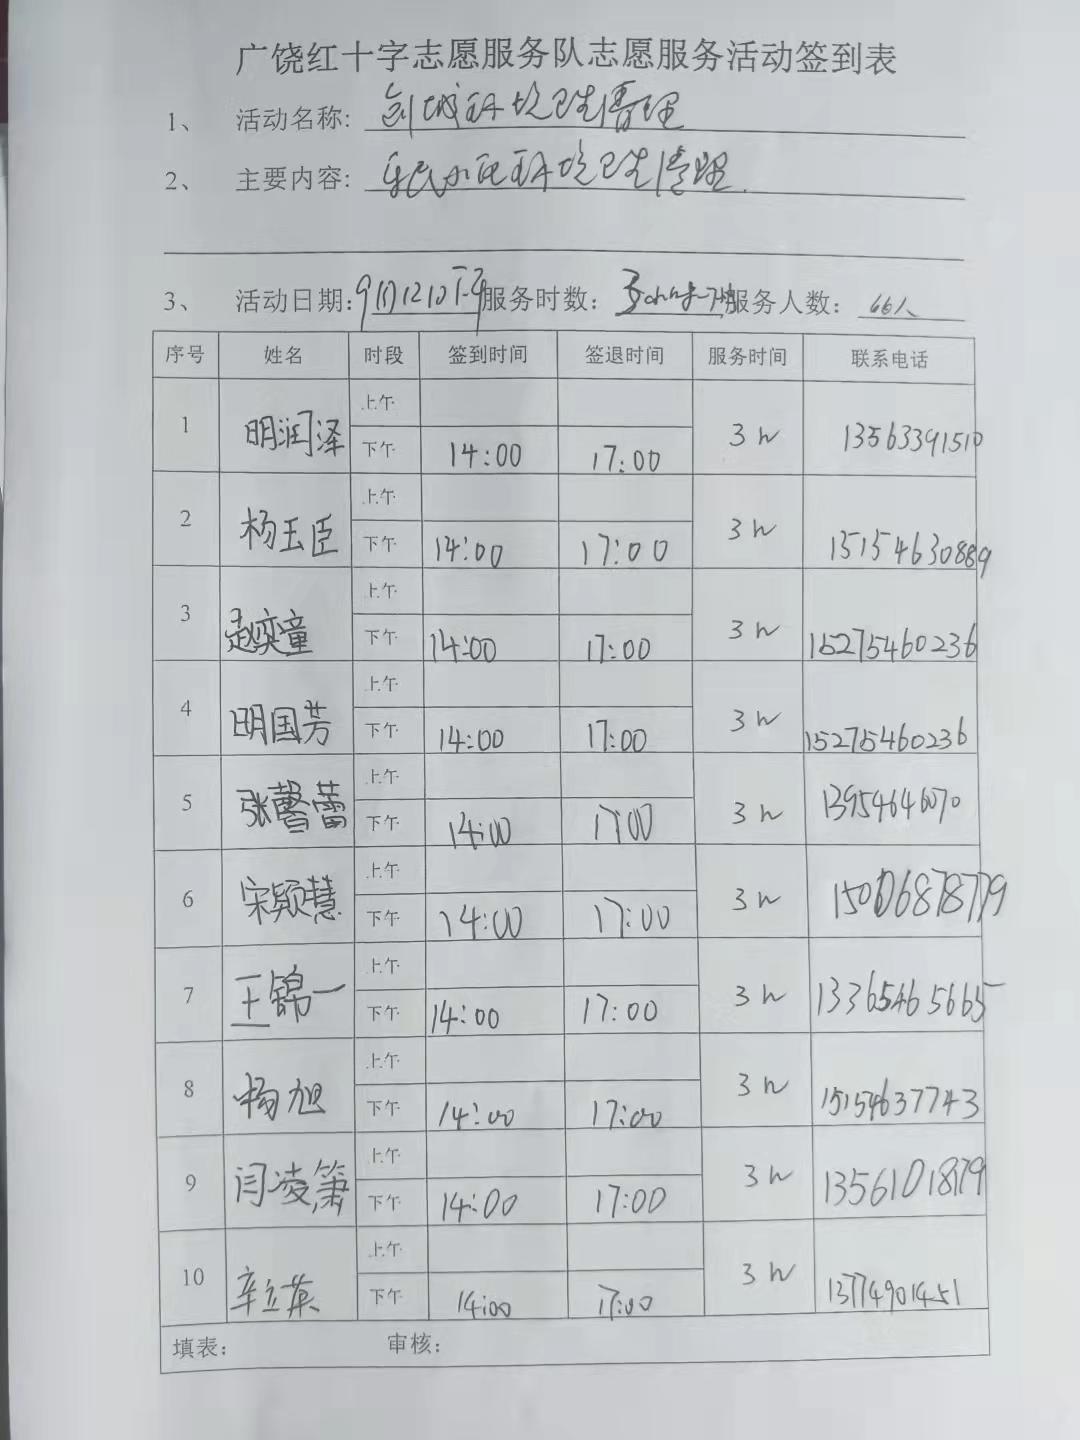 广饶红十字志愿服务队志愿服务活动签到表
1、 活动名称: 创城环境卫生清理
2、 主要内容: 乐民小区环境卫生清理.
3、 活动日期: 9月12日下午 服务时数: 服务人数: 66人
序号 姓名 时段 签到时间 签退时间 服务时间 联系电话
1 明润泽 上午
下午 14:00 17:00 3h 13563391510
2 杨玉臣 上午
下午 14:00 17:00 3h 15154630889
3 赵奕童 上午
下午 14:00 17:00 3h 15275460236
4 明国芳 上午
下午 14:00 17:00 3h 15275460236
5 张馨蕾 上午
下午 14:00 17:00 3h 13954646070
6 宋颖慧 上午
下午 14:00 17:00 3h 15006878779
7 王锦一 上午
下午 14:00 17:00 3h 13365465665
8 杨旭 上午
下午 14:00 17:00 3h 15154637743
9 闫凌箫 上午
下午 14:00 17:00 3h 13561018779
10 辛立英 上午
下午 14:00 17:00 3h 13774901451
填表: 审核: